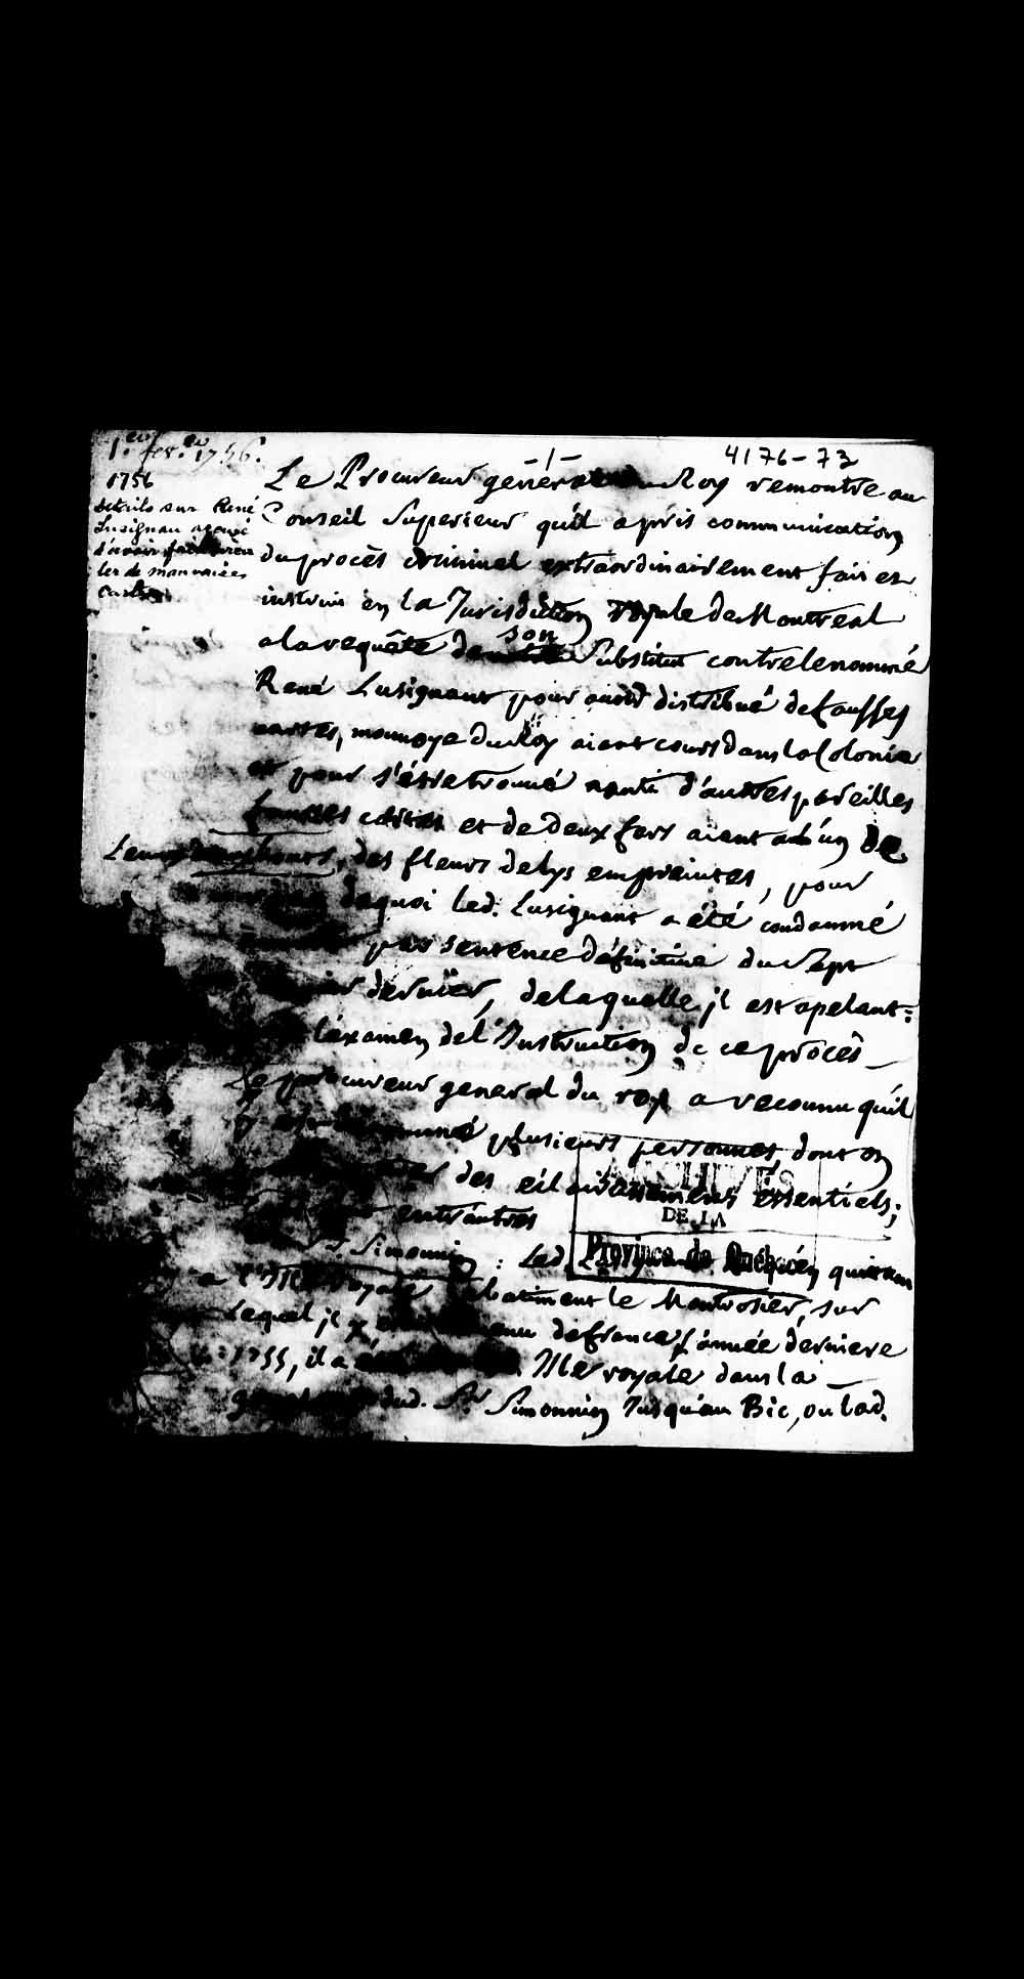 1er fer.er 1756.
-1-
4176-73
1756
details sur René
Lusignan
d'avoir
ler de mauvaises
cartes
Le Procureur général du Roy remontre au
Conseil Superieur qu'il a pris communication
du procès criminel extraordinairement fait et
instruit en la Jurisdiction royale de Montreal
a la requête de son Substitut contre le nommé
René Lusignant pour avoir distribué de fausses
cartes, monnoye du Roy aient cours dans la Colonie
et pour s'être trouvé nanti d'autres pareilles
fausses cartes et de deux fers aient a l'un de
Leurs deux bouts, des fleurs de lys empreintes, pour
de quoi led. Lusignant a été condamné
par sentence définitive du Sept
dernier, de laquelle jl est apelant:
l'éxamen de l'Instruction de ce procès
Le procureur general du roy a reconnu quil
plusieurs personnes, dont on
des éclaircissemens éssentiels;
entr'autres
Sr. Simonnin : Led. Lusignant
a l'Isle Royale batiment le Montrosier, sur
Lequel jl de france l'année derniere
1755, il a Isle royale dans la
dud. Sr. Simonnin Jusqu'au Bic, ou lad.
ARCHIVES
DE LA
Province de Québec